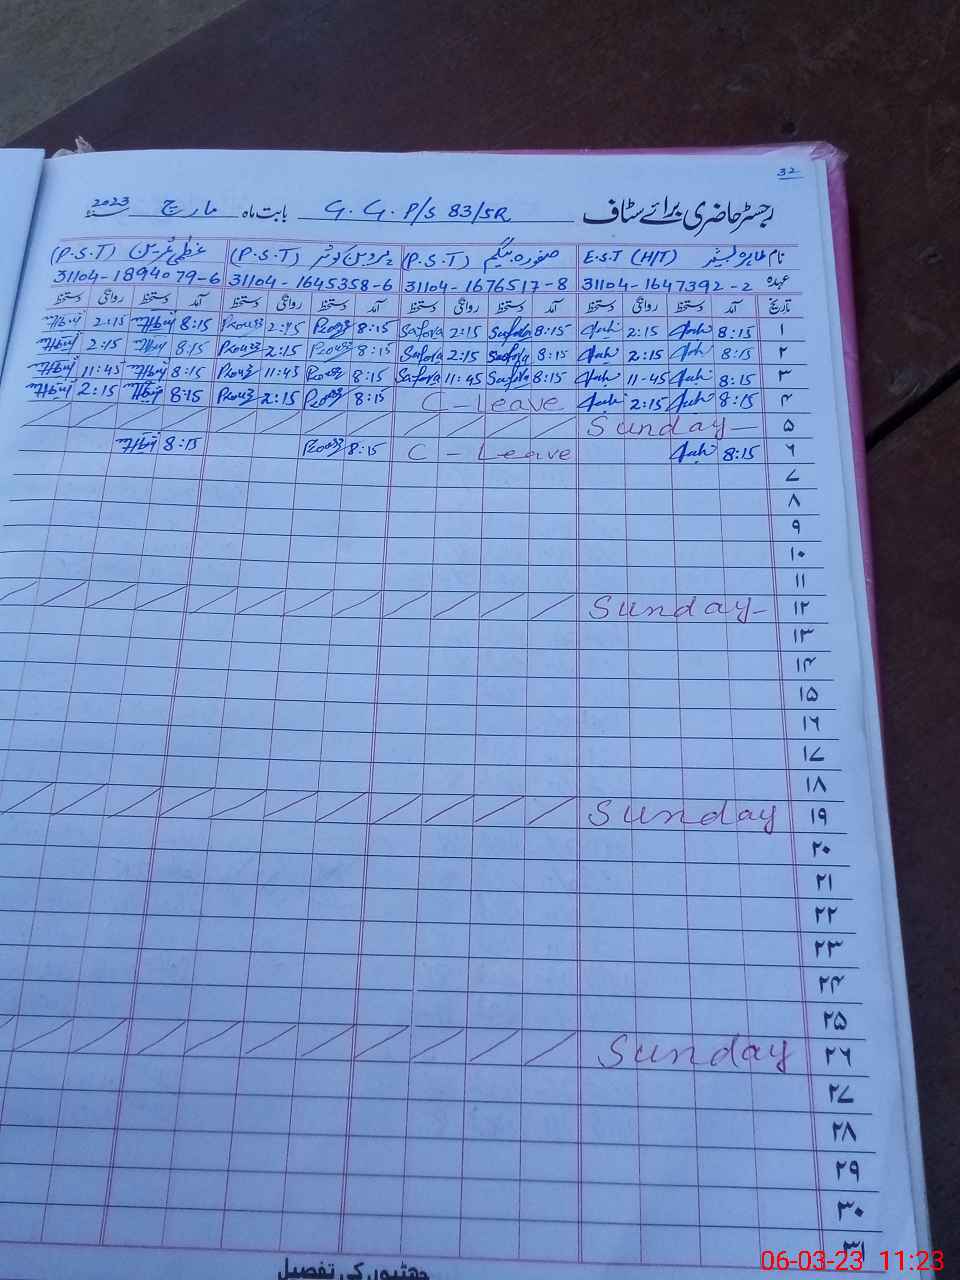 32
رجسٹر حاضری برائے سٹاف G. G. P/S 83/5R بابت ماہ مارچ 2023
نام طاہرہ E.S.T (H/T) صفورہ بیگم (P.S.T) پروین کوثر (P.S.T) عظمیٰ (P.S.T)
عہدہ 31104-1647392-2 31104-1676517-8 31104-1645358-6 31104-1894079-6
تاریخ آمد دستخط روانگی دستخط آمد دستخط روانگی دستخط آمد دستخط روانگی دستخط آمد دستخط روانگی دستخط
۱ 8:15 2:15 8:15 Safora 2:15 Safora 8:15 2:15 8:15 2:15
۲ 8:15 2:15 8:15 Safora 2:15 Safora 8:15 2:15 8:15 2:15
۳ 8:15 11-45 8:15 Safora 11:45 Safora 8:15 11:45 8:15 11:45
۴ 8:15 2:15 C-Leave 8:15 2:15 8:15 2:15
۵ Sunday
۶ 8:15 C - Leave 8:15 8:15
۷
۸
۹
۱۰
۱۱
۱۲ Sunday
۱۳
۱۴
۱۵
۱۶
۱۷
۱۸
۱۹ Sunday
۲۰
۲۱
۲۲
۲۳
۲۴
۲۵
۲۶ Sunday
۲۷
۲۸
۲۹
۳۰
۳۱
چھٹیوں کی تفصیل
06-03-23 11:23